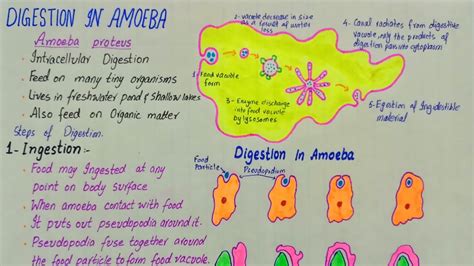 DIGESTION IN AMOEBA
Amoeba proteus
• Intracellular Digestion
• Feed on many tiny organisms
• Lives in freshwater pond & shallow lakes
• Also feed on Organic matter
Steps of Digestion.
1- Ingestion:-
• Food may Ingested at any
point on body surface
• When amoeba contact with food
• It puts out pseudopodia around it.
• Pseudopodia fuse together around
the food particle to form food vacuole.
2- vacuole decrease in size
as a result of water
loss
1- Food vacuole
form
3- Enzyme discharge
into food vacuole
by lysosomes
4- Canal radiates from digestive
vacuole, only the products of
digestion pass into cytoplasm
5- Egestion of Ingestible
material
Digestion In Amoeba
Food
Particle
Pseudopodium